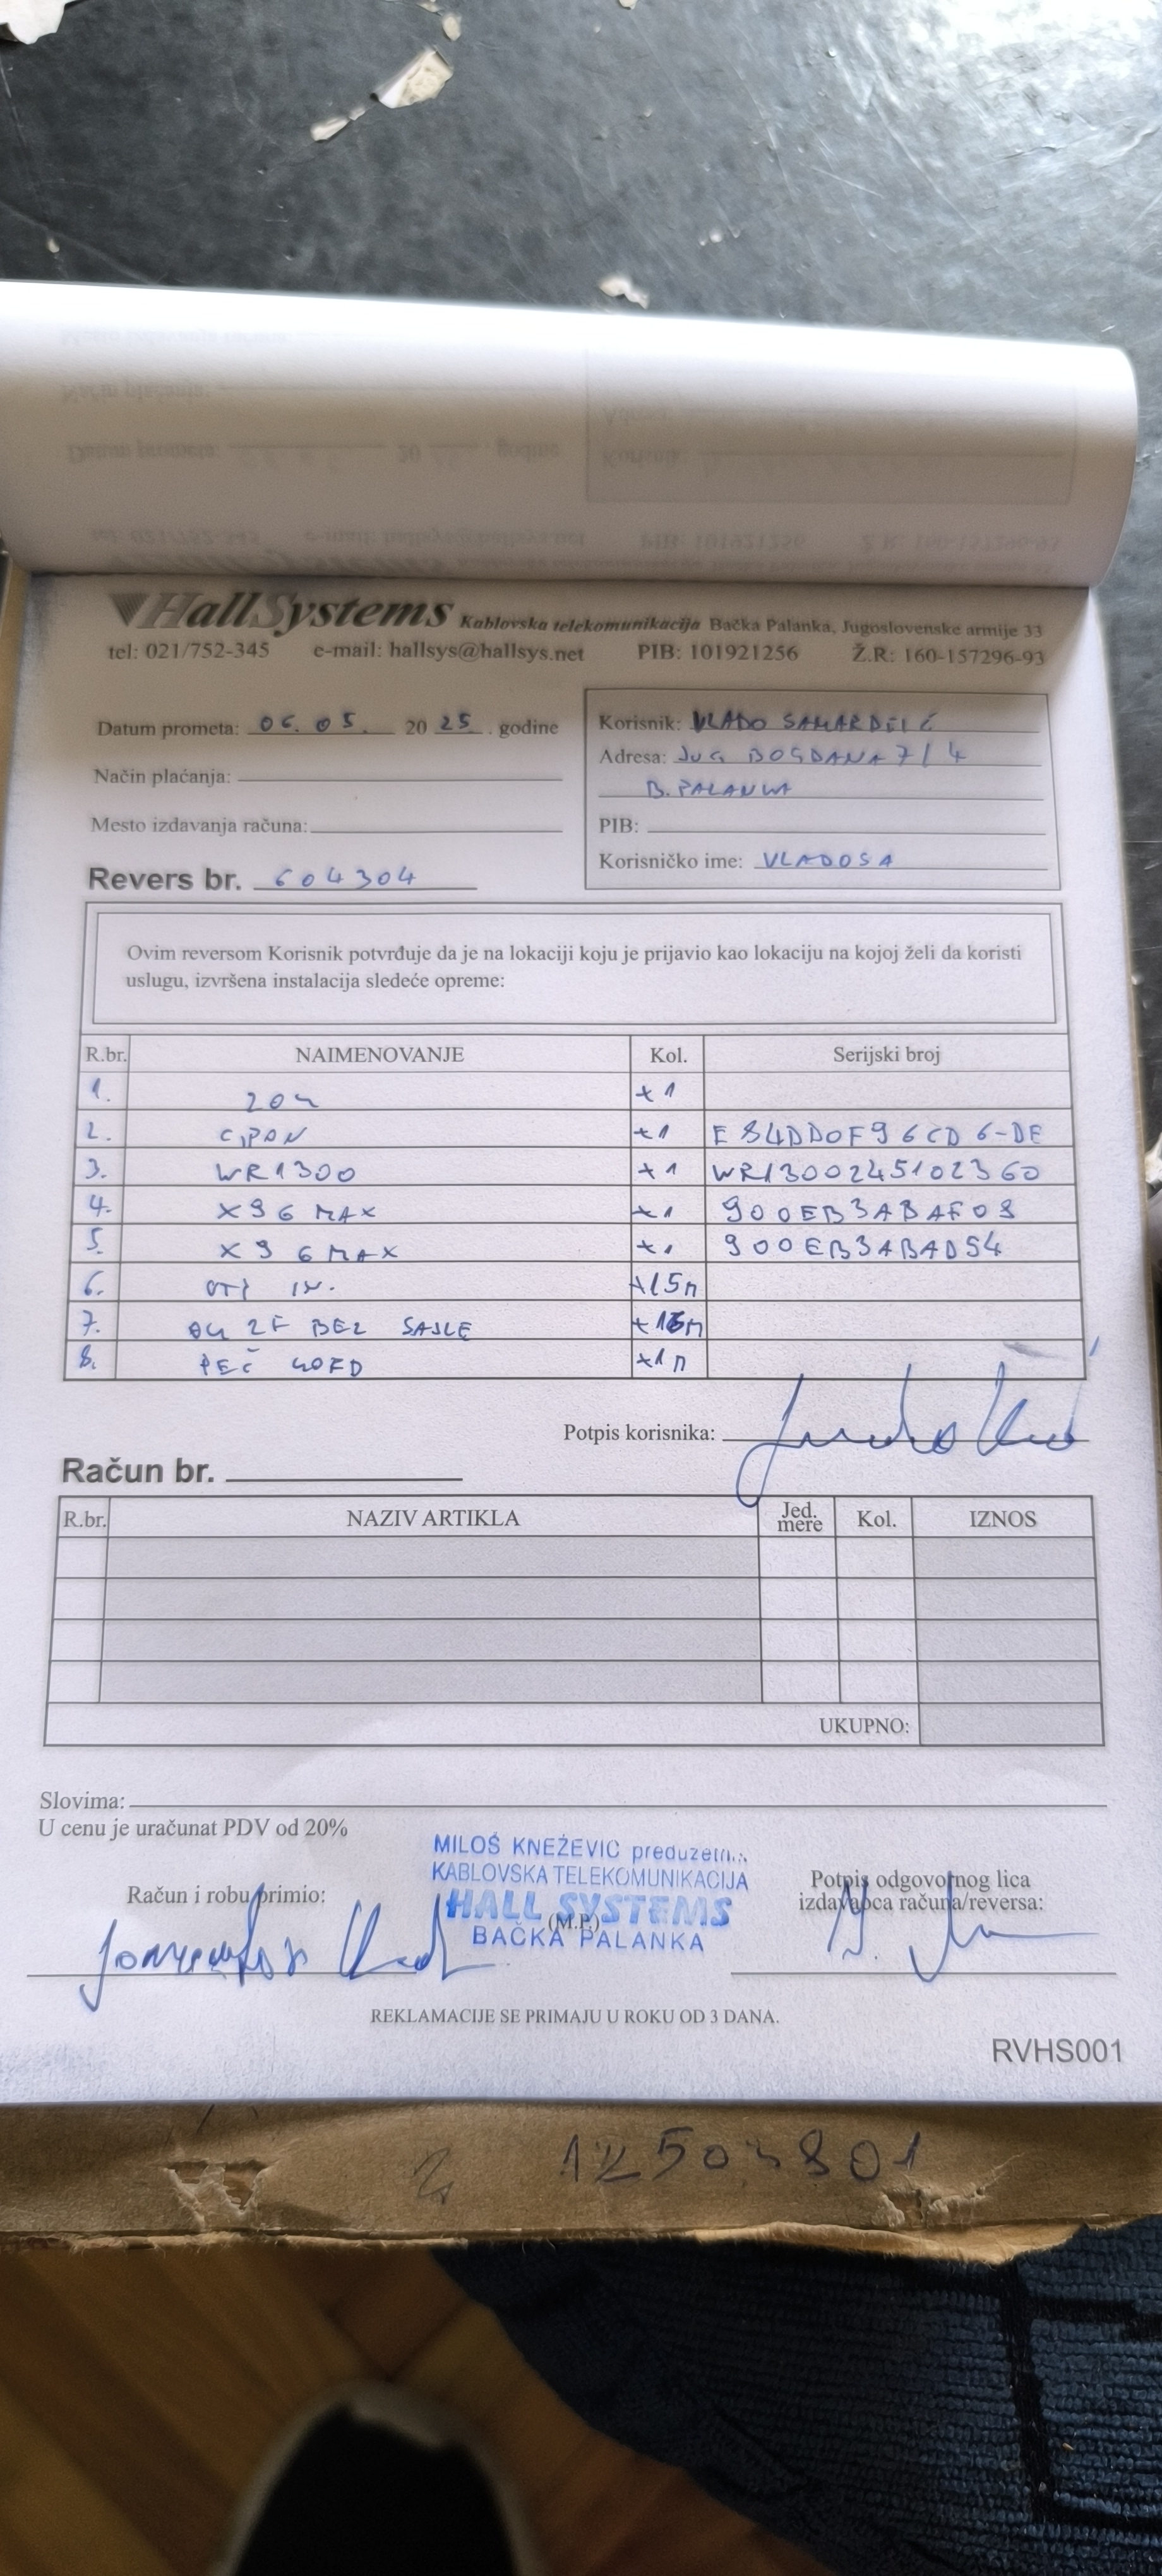 HallSystems Kablovska telekomunikacija Bačka Palanka, Jugoslovenske armije 33
tel: 021/752-345 e-mail: hallsys@hallsys.net PIB: 101921256 Ž.R: 160-157296-93
Datum prometa: 06. 05. 20 25 . godine
Način plaćanja:
Mesto izdavanja računa:
Revers br. 604304
Korisnik: VLADO
Adresa: JUG BOGDANA 7/4
B. PALANKA
PIB:
Korisničko ime: VLADOSA
Ovim reversom Korisnik potvrđuje da je na lokaciji koju je prijavio kao lokaciju na kojoj želi da koristi
uslugu, izvršena instalacija sledeće opreme:
R.br. NAIMENOVANJE Kol. Serijski broj
1. +1
2. +1 E84DD0F96CD6-DE
3. WR1300 +1 WR1300245102360
4. X96 MAX +1
5. X96MAX +1
6. +15m
7. 2F BEZ SAJLE
8. +1m
Potpis korisnika:
Račun br.
R.br. NAZIV ARTIKLA Jed. mere Kol. IZNOS
UKUPNO:
Slovima:
U cenu je uračunat PDV od 20%
MILOŠ KNEŽEVIĆ
KABLOVSKA TELEKOMUNIKACIJA
HALL SYSTEMS
(M.P.)
BAČKA PALANKA
Račun i robu primio:
Potpis odgovornog lica
izdavaoca računa/reversa:
REKLAMACIJE SE PRIMAJU U ROKU OD 3 DANA.
RVHS001